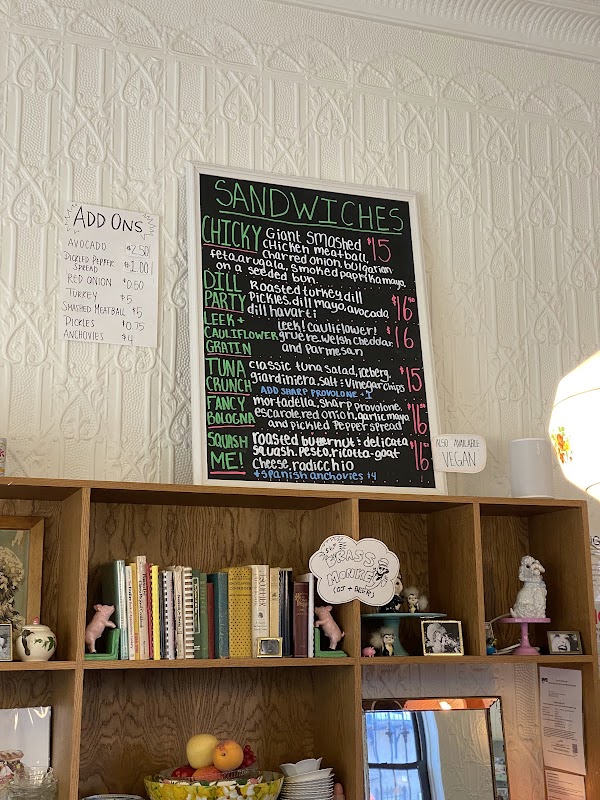 SANDWICHES
CHICKY Giant smashed $15
chicken meatball,
charred onion, bulgarian
feta, arugala, smoked paprika mayo,
on a seeded bun.
DILL PARTY Roasted turkey, dill $16
pickles, dill mayo, avocado,
dill havarti
LEEK + CAULIFLOWER GRATIN Leek! cauliflower! $16
gruere, Welsh Cheddar
and parmesan
TUNA CRUNCH classic tuna salad, iceberg, $15
giardiniera, salt + vinegar chips
ADD SHARP PROVOLONE +1
FANCY BOLOGNA mortadella, sharp provolone, $16
escarole, red onion, garlic mayo
and pickled pepper spread
SQUASH ME! roasted butternut + delicata $16
squash, pesto, ricotta-goat
cheese, radicchio
+ spanish anchovies +4
ALSO AVAILABLE
VEGAN
ADD ONS
AVOCADO $2.50
PICKLED PEPPER SPREAD $1.00
RED ONION $0.50
TURKEY $5
SMASHED MEATBALL $5
PICKLES $0.75
ANCHOVIES $4
BRASS
MONKEY
(OJ + BEER)